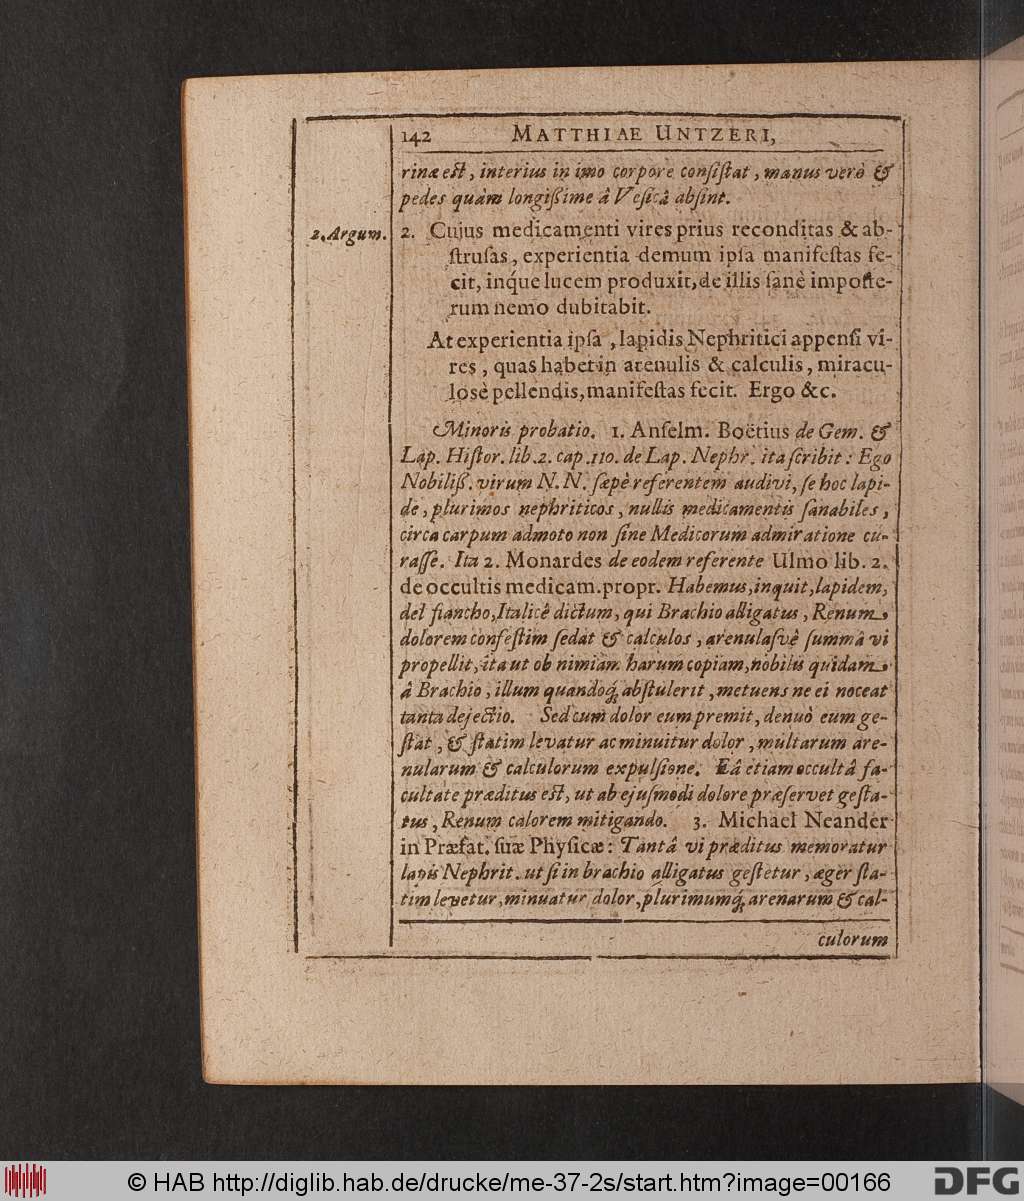 142 MATTHIAE UNTZERI,
rinæ est, interius in imo corpore consistat, manus verò &
pedes quàm longißime â Vesicâ absint.
2. Argum.
2. Cujus medicamenti vires prius reconditas & ab-
strusas, experientia demum ipsa manifestas fe-
cit, inq́ue lucem produxit, de illis sanè imposte-
rum nemo dubitabit.
At experientia ipsa, lapidis Nephritici appensi vi-
res, quas habet in arenulis & calculis, miracu-
losè pellendis, manifestas fecit. Ergo &c.
Minoris probatio. 1. Anselm. Boëtius de Gem. &
Lap. Histor. lib. 2. cap. 110. de Lap. Nephr. ita scribit: Ego
Nobiliß. virum N. N. sæpè referentem audivi, se hoc lapi-
de, plurimos nephriticos, nullis medicamentis sanabiles,
circa carpum admoto non sine Medicorum admiratione cu-
rasse. Ita 2. Monardes de eodem referente Ulmo lib. 2.
de occultis medicam. propr. Habemus, inquit, lapidem,
del fiancho, Italicê dictum, qui Brachio alligatus, Renum
dolorem confestim sedat & calculos, arenulasvè summâ vi
propellit, ita ut ob nimiam harum copiam, nobilis quidam
â Brachio, illum quandoq́; abstulerit, metuens ne ei noceat
tanta dejectio. Sed cum dolor eum premit, denuò eum ge-
stat, & statim levatur ac minuitur dolor, multarum are-
nularum & calculorum expulsione. Eâ etiam occultâ fa-
cultate præditus est, ut ab ejusmodi dolore præservet gesta-
tus, Renum calorem mitigando. 3. Michael Neander
in Præfat. suæ Physicæ: Tantâ vi præditus memoratur
lapis Nephrit. ut si in brachio alligatus gestetur, æger sta-
tim levetur, minuatur dolor, plurimumq́; arenarum & cal-
culorum
© HAB http://diglib.hab.de/drucke/me-37-2s/start.htm?image=00166
DFG